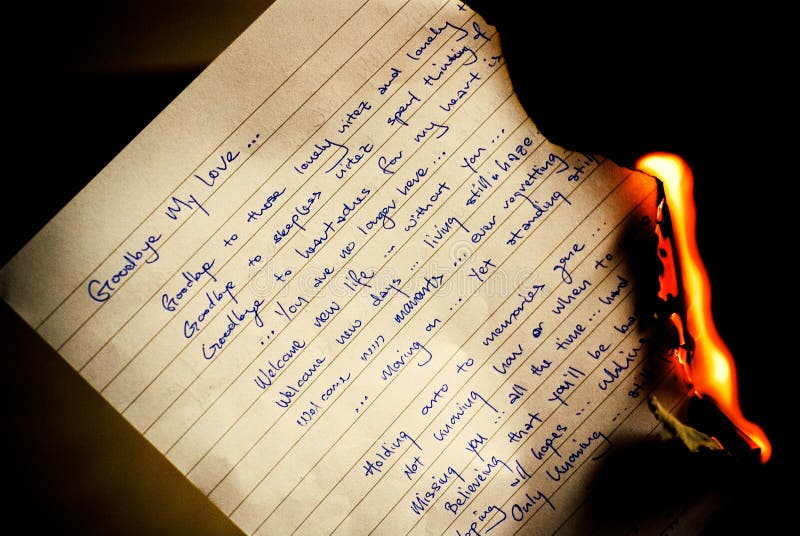 Goodbye My Love...
Goodbye to those lonely nitez and lonely
Goodbye to sleepless nitez spend thinking of
Goodbye to heartaches for my heart is
... You are no longer here...
Welcome new life ... without you...
Welcome new days ... living still a haze
Welcome moments ... ever regretting
... Moving on ... Yet standing still
Holding onto to memories gone...
Not knowing how or when to
Missing you ... all the time ... hard
Believeing that you'll be ba
oping all hopes ...
Only knowing ...
dreamstime